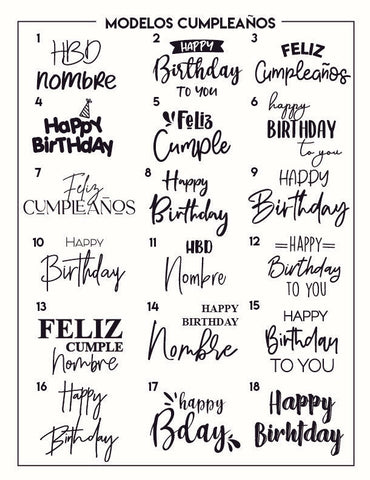 MODELOS CUMPLEAÑOS
1
HBD
Nombre
2
HAPPY
Birthday
TO YOU
3
FELIZ
Cumpleaños
4
HaPPY
BirTHday
5
Feliz
Cumple
6
happy
BIRTHDAY
to you
7
Feliz
CUMPLEAÑOS
8
Happy
Birthday
9
HAPPY
Birthday
10
HAPPY
Birthday
11
HBD
Nombre
12
=HAPPY=
Birthday
TO YOU
13
FELIZ
CUMPLE
Nombre
14
HAPPY
BIRTHDAY
Nombre
15
HAPPY
Birthday
TO YOU
16
Happy
Birthday
17
happy
Bday
18
Happy
Birhtday